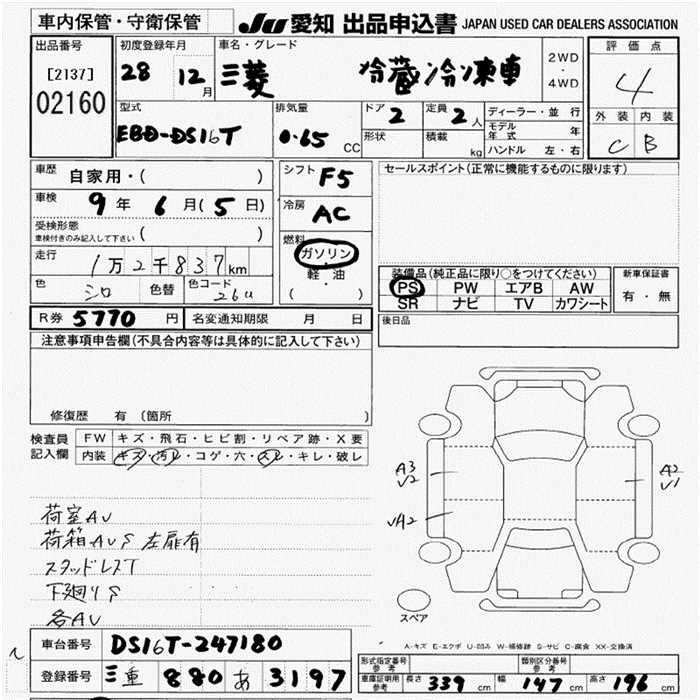 車内保管・守衛保管
JU 愛知 出品申込書 JAPAN USED CAR DEALERS ASSOCIATION
出品番号
[2137]
02160
初度登録年月
28 12月
車名・グレード
三菱 冷蔵冷凍車
2WD
・
4WD
評価点
4
外装 内装
C B
型式
EBD-DS16T
排気量
0.65 CC
ドア 2
形状
定員 2 人
積載 kg
ディーラー・並行
モデル年式 年
ハンドル 左・右
車歴
自家用・( )
車検
9年 6月(5日)
受検形態
車検付きのみ記入して下さい ( )
走行
1万2千837km
色 シロ 色替 色コード 26U
シフト F5
冷房 AC
燃料
ガソリン
・
軽油
・
( )
セールスポイント(正常に機能するものに限ります)
装備品(純正品に限り○をつけてください)
PS PW エアB AW
SR ナビ TV カワシート
新車保証書
有・無
R券 5770 円 名変通知期限 月 日
後日品
注意事項申告欄(不具合内容等は具体的に記入して下さい)
修復歴 有 (箇所 )
検査員
記入欄
FW キズ・飛石・ヒビ割・リペア跡・X要
内装 キズ・汚レ・コゲ・穴・スレ・キレ・破レ
荷室AU
荷箱AUS 左扉有
スタッドレスT
下廻りS
各AU
A3
V2
VA2
A2
V1
スペア
A-キズ E-エクボ U-凹み W-補修跡 S-サビ C-腐食 XX-交換済
車台番号 DS16T-247180
登録番号 三重 880 あ 3197
形式指定番号
参考
類別区分番号
参考
車庫証明用
参考
長さ 339 cm 幅 147 cm 高さ 196 cm